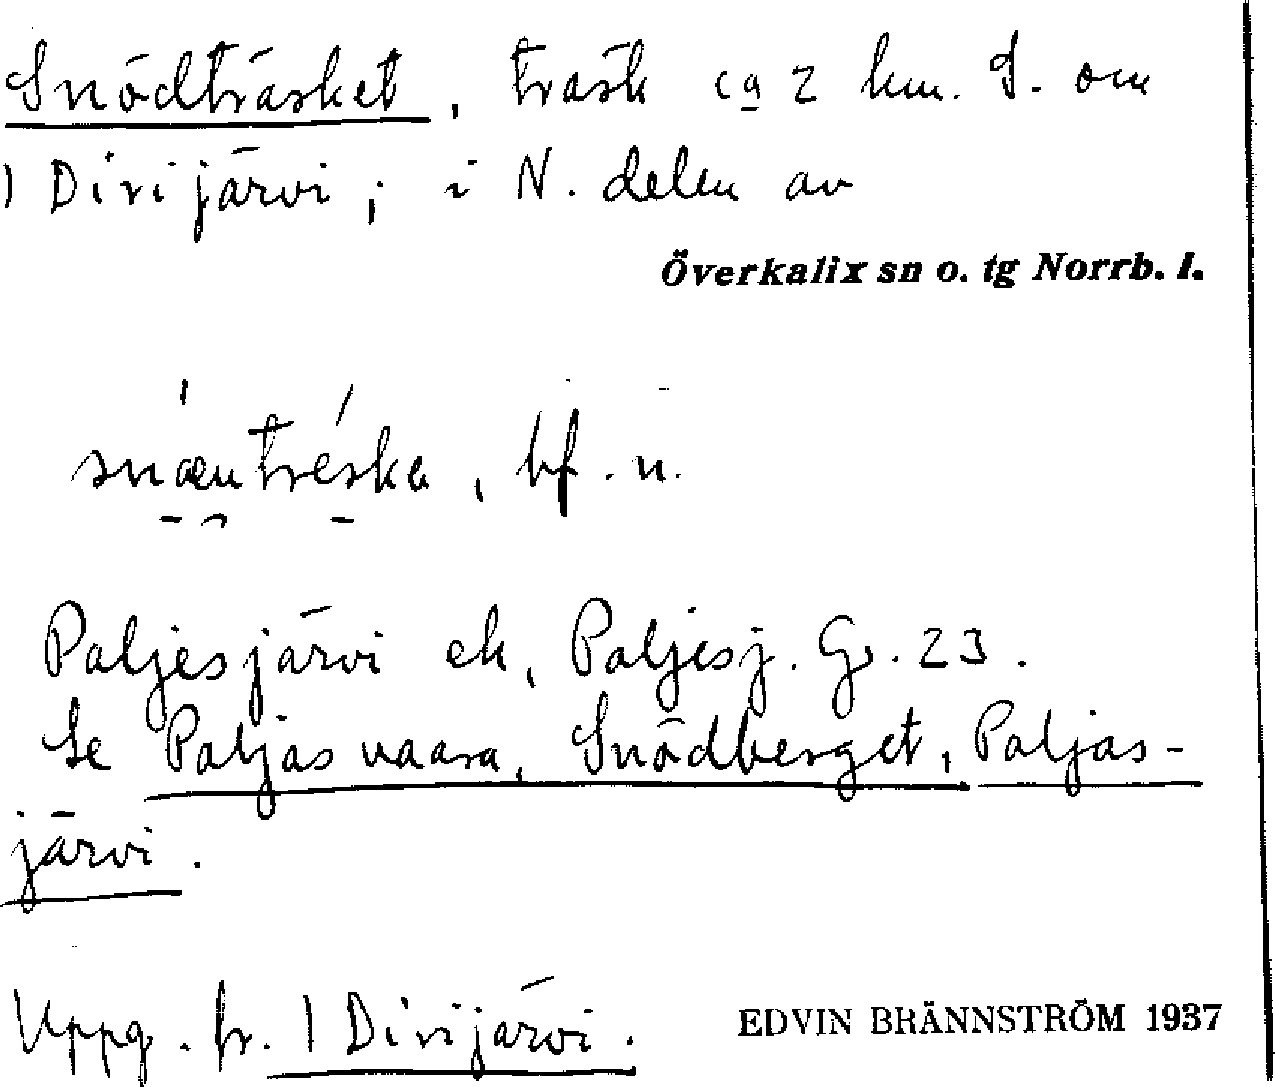 Snödträsket, träsk ca 2 km. S. om
1 Divijärvi; i N. delen av
Överkalix sn o. tg Norrb. l.
snæntréska, bf. n.
Paljesjärvi ek, Paljesj. Gs. 23.
Se Paljasvaara, Snödberget, Paljas-
järvi.
Uppg. fr. 1 Divijärvi.
EDVIN BRÄNNSTRÖM 1937